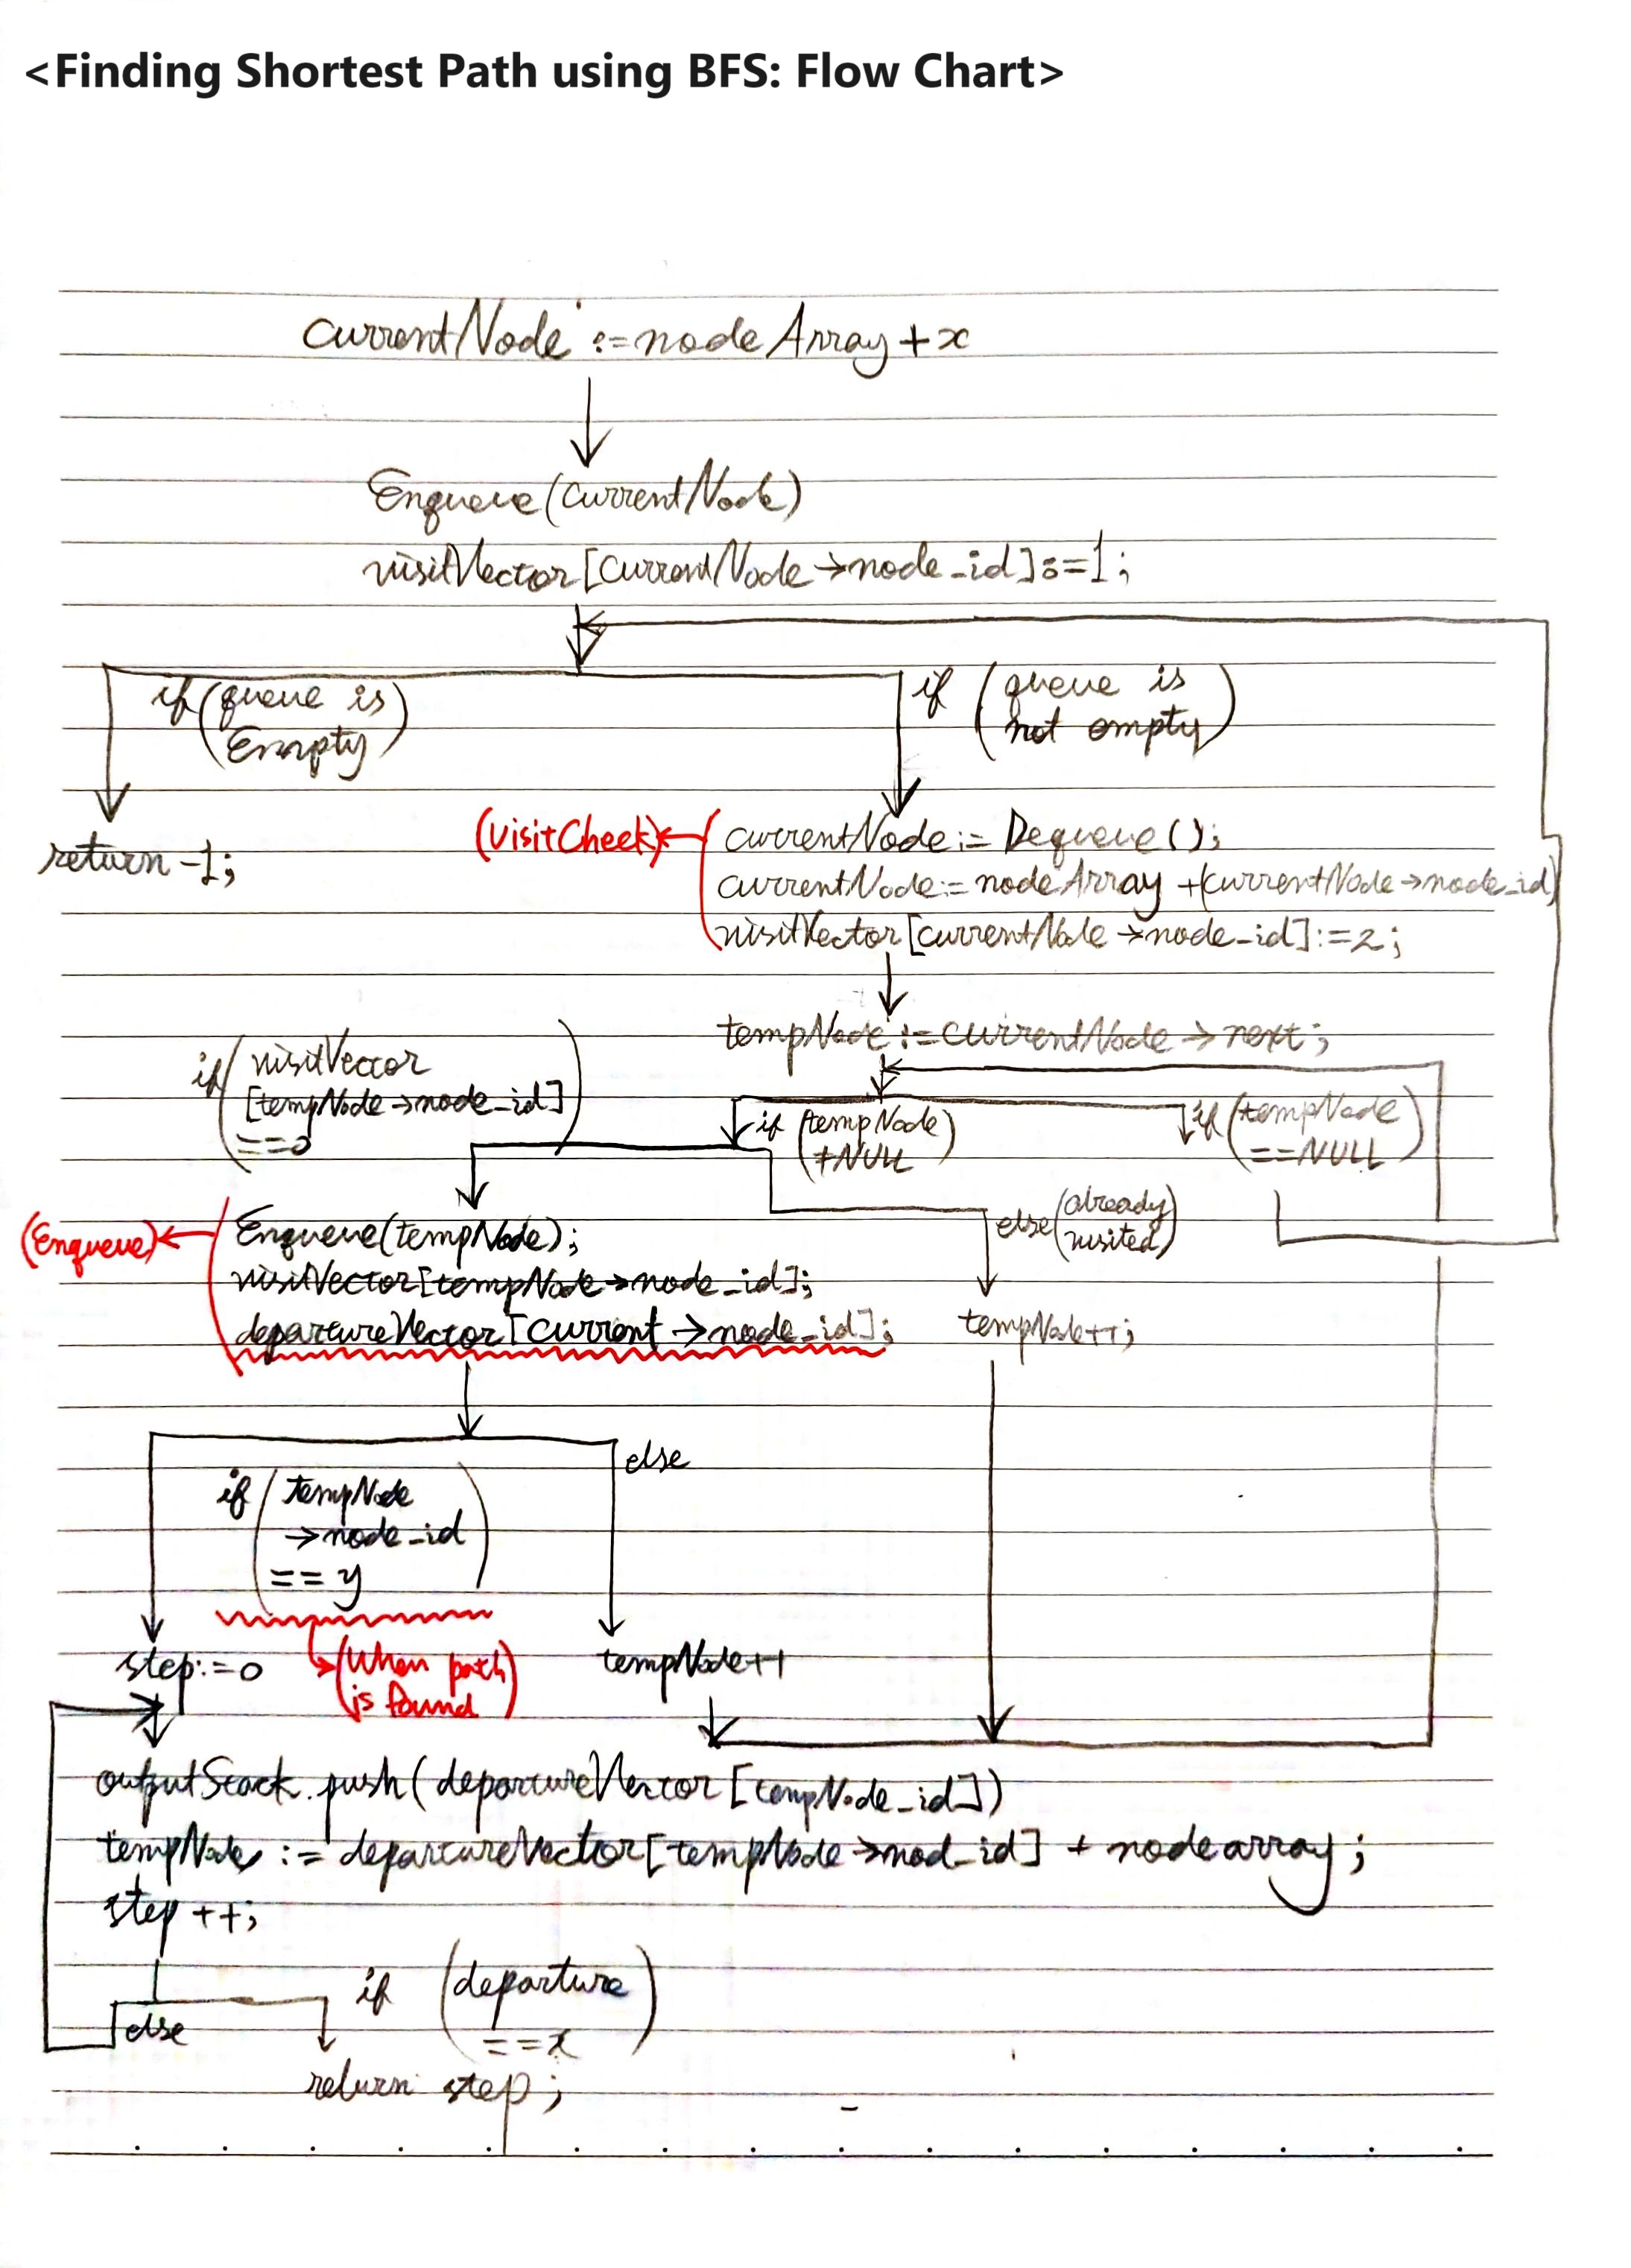 <Finding Shortest Path using BFS: Flow Chart>
currentNode :=nodeArray+x
Enqueue(currentNode)
visitVector[currentNode→node_id]:=1;
if(queue is
Empty)
if (queue is
not empty)
return -1;
(visitCheck)
currentNode:= Dequeue();
currentNode:= nodeArray +(currentNode→node_id)
visitVector[currentNode→node_id]:=2;
tempNode:=currentNode→next;
if(visitVector
[tempNode→node_id]
==0)
if (tempNode
≠NULL)
if(tempNode
==NULL)
else(already
visited)
(Enqueue)
Enqueue(tempNode);
visitVector[tempNode→node_id];
departureVector[current→node_id];
tempNode++;
if(tempNode
→node_id
==y)
else
step:=0
(When path
is found)
tempNode++
outputStack.push(departureVector[tempNode_id])
tempNode := departureVector[tempNode→nod_id] + nodearray;
step++;
else
if (departure
==x)
return step;